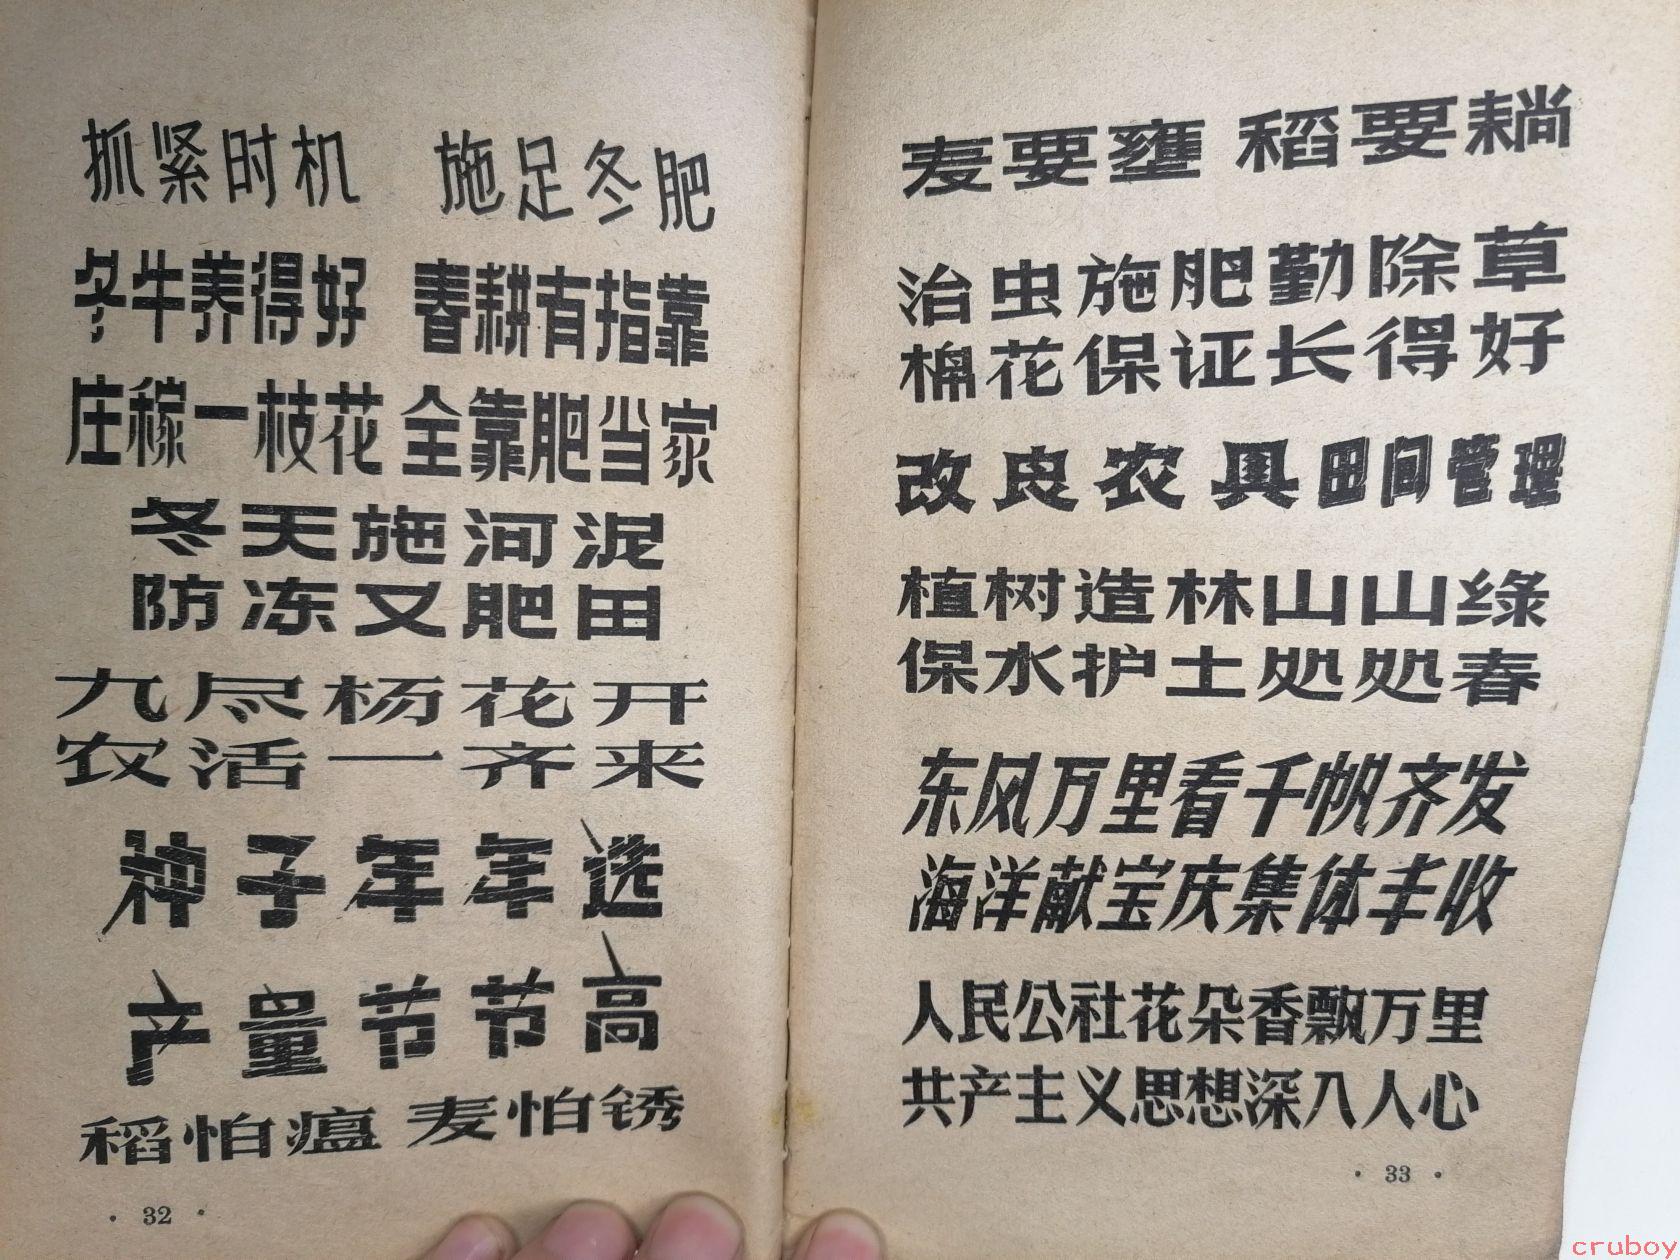 抓紧时机 施足冬肥
冬牛养得好 春耕有指靠
庄稼一枝花 全靠肥当家
冬天施河泥
防冻又肥田
九尽杨花开
农活一齐来
种子年年选
产量节节高
稻怕瘟 麦怕锈
· 32 ·
麦要壅 稻要耥
治虫施肥勤除草
棉花保证长得好
改良农具 田间管理
植树造林山山绿
保水护土处处春
东风万里看千帆齐发
海洋献宝庆集体丰收
人民公社花朵香飘万里
共产主义思想深入人心
· 33 ·
cruboy